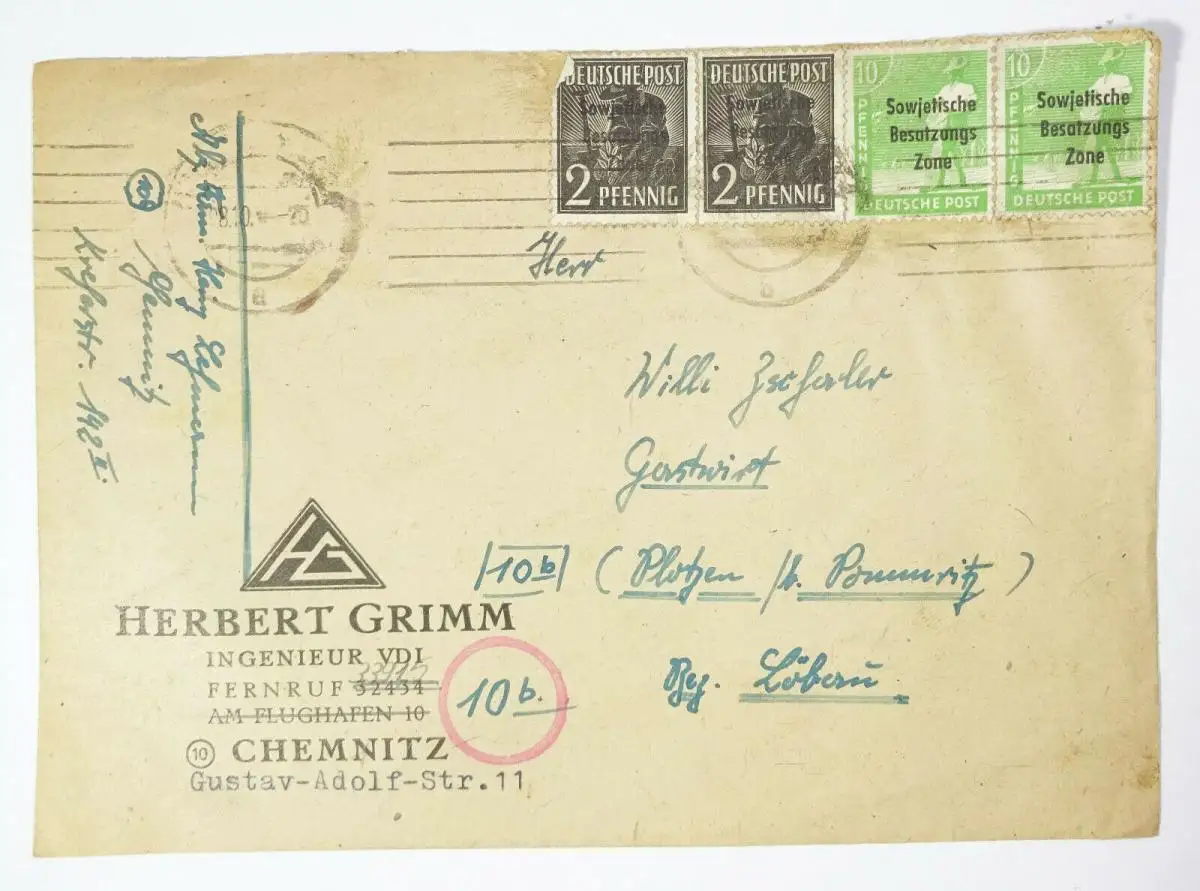 DEUTSCHE POST
Sowjetische
Besatzungs
Zone
2 PFENNIG
DEUTSCHE POST
Sowjetische
Besatzungs
Zone
2 PFENNIG
10
PFENNIG
Sowjetische
Besatzungs
Zone
DEUTSCHE POST
10
PFENNIG
Sowjetische
Besatzungs
Zone
DEUTSCHE POST
Herr
Willi Zschaler
Gastwirt
10b (Plotzen /b. Pommritz)
Bez. Löbau
Lehmann
Chemnitz
HG
HERBERT GRIMM
INGENIEUR VDI
FERNRUF 32434
AM FLUGHAFEN 10
10 CHEMNITZ
Gustav-Adolf-Str.11
10b.